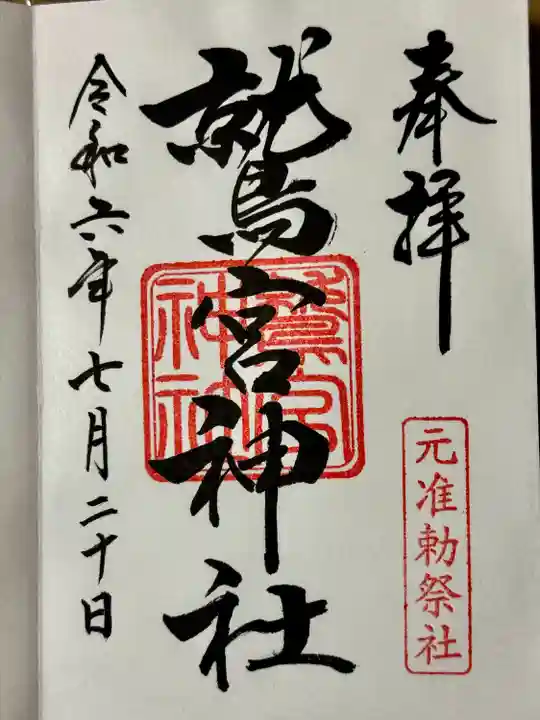 奉拝
元准勅祭社
鷲宮神社
鷲宮神社
令和六年七月二十日